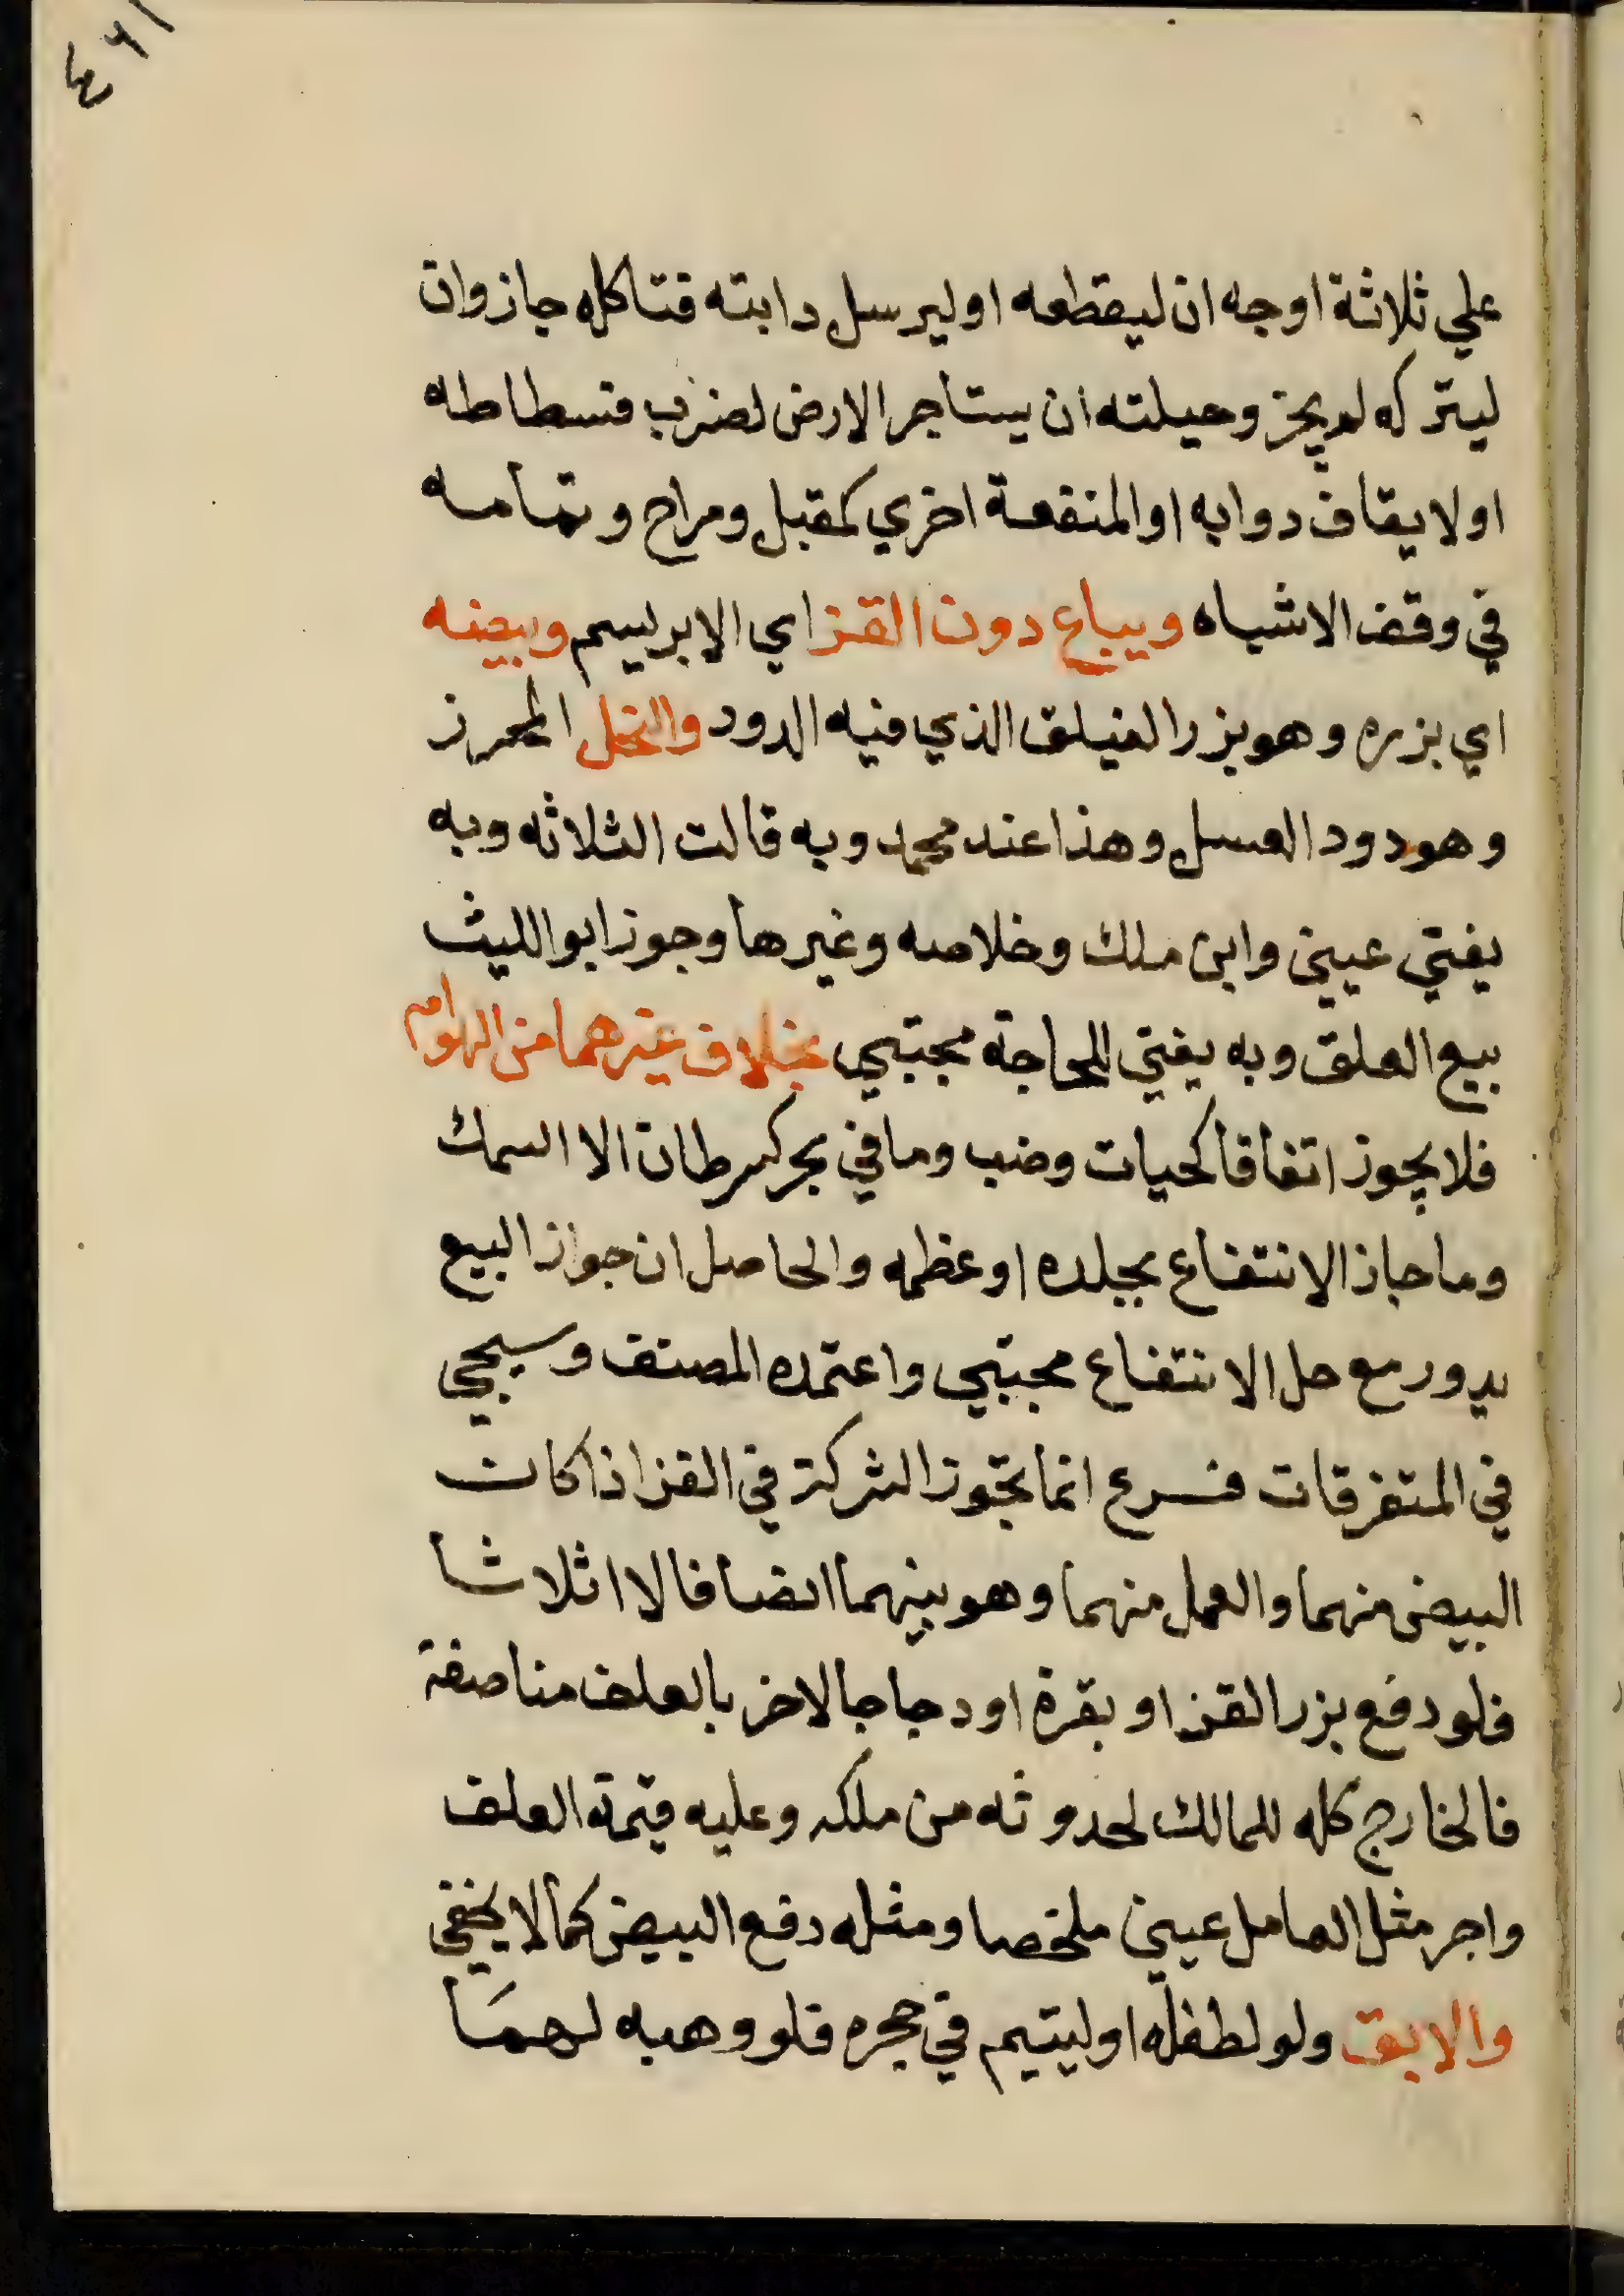 ٤٦١
علي ثلاثة اوجه ان ليقطعه او ليرسل دابته فتاكله جاز وان
ليتركه لم يجز وحيلته ان يستاجر الارض لضرب فسطاطه
اولا يقاف دوابه او المنفعة اخري كمقبل ومراح وتمامه
في وقف الاشباه ويباع دون القز اي الابريسم وبيضه
اي بزره وهو بزر الفيلق الذي فيه الدود والنحل المحرز
وهو دود العسل وهذا عند محمد وبه قالت الثلاثه وبه
يفتي عيني وابن ملك وخلاصه وغيرها وجوز ابو الليث
بيع العلق وبه يفتي للحاجة مجتبي بخلاف غيرهما من الهوام
فلا يجوز اتفاقا كحيات وضب وما في بحر كسرطان الا السمك
وما جاز الانتفاع بجلده او عظمه والحاصل ان جواز البيع
يدور مع حل الانتفاع مجتبي واعتمده المصنف وسيجي
في المتفرقات فرع انما تجوز الشركة في القز اذا كان
البيض منهما والعمل منهما وهو بينهما انصافا لا اثلاثا
فلو دفع بزر القز او بقرة او دجاجا لاخر بالعلف مناصفة
فالخارج كله للمالك لحدوثه من ملكه وعليه قيمة العلف
واجر مثل العامل عيني ملخصا ومثله دفع البيض كما لا يخفي
والابق ولو لطفله او ليتيم في حجره فلو وهبه لهما